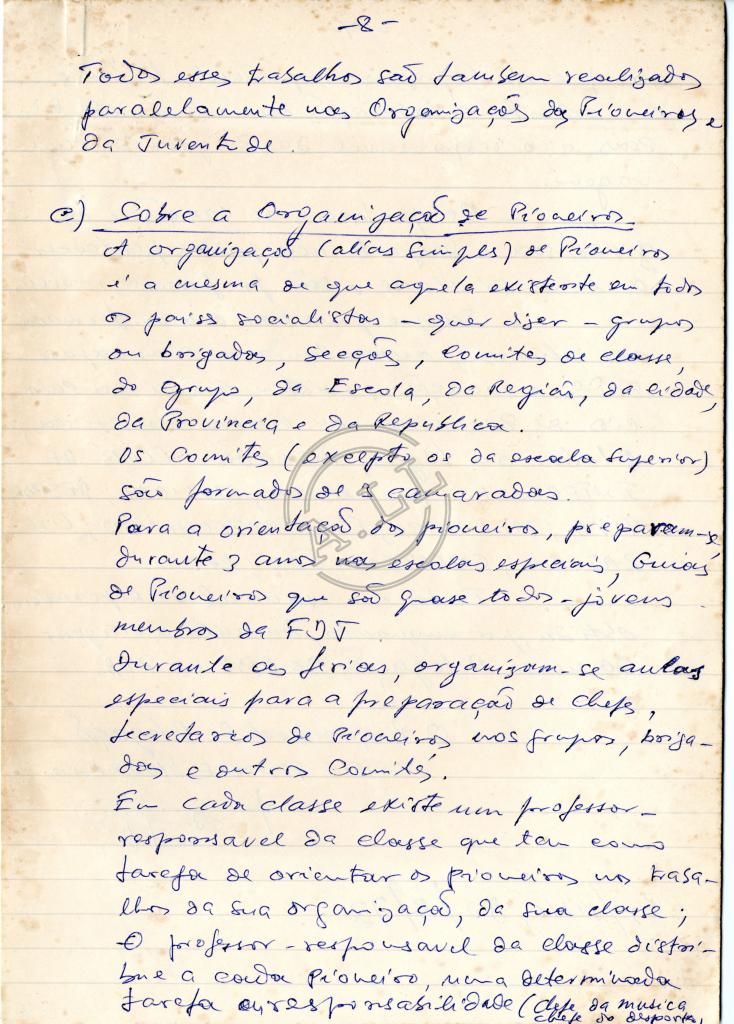 -8-
Todos esses trabalhos são tambem realizados
paralelamente nas Organizações dos Pioneiros e
da Juventude.
e) Sobre a Organização de Pioneiros
A organização (alias simples) de Pioneiros
é a mesma de que aquela existente em todos
os paises socialistas - quer dizer - grupos
ou brigadas, secções, Comités de classe,
do grupo, da Escola, da Região, da cidade,
da Provincia e da Republica.
Os Comités (excepto os da escala superior)
são formados de 3 camaradas.
A.LL
Para a orientação dos pioneiros, preparam-se,
durante 3 anos nas escolas especiais, Guias
de Pioneiros que são quase todos - jovens
membros da FDJ.
Durante as ferias, organizam-se aulas
especiais para a preparação de chefes,
secretarios de Pioneiros nos grupos, briga-
das e outros Comités.
Em cada classe existe um professor-
responsavel da classe que tem como
tarefa de orientar os pioneiros nos traba-
lhos da sua organização, da sua classe;
O professor-responsavel da classe distri-
bue a cada Pioneiro, uma determinada
tarefa ou responsabilidade (chefe da musica
chefe do desporto,